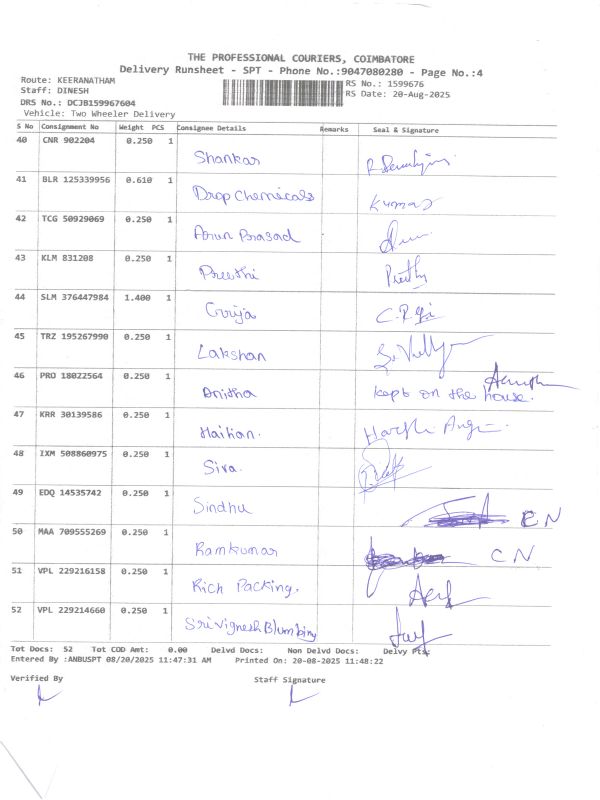 THE PROFESSIONAL COURIERS, COIMBATORE
Delivery Runsheet - SPT - Phone No.:9047080280 - Page No.:4
Route: KEERANATHAM RS No.: 1599676
Staff: DINESH RS Date: 20-Aug-2025
DRS No.: DCJB159967604
Vehicle: Two Wheeler Delivery
S No Consignment No Weight PCS Consignee Details Remarks Seal & Signature
40 CNR 902204 0.250 1 Shankar
41 BLR 125339956 0.610 1 Drop Chemicals Kumar
42 TCG 50929069 0.250 1 Arun Prasad
43 KLM 831208 0.250 1 Preethi Preethy
44 SLM 376447984 1.400 1 Girija
45 TRZ 195267990 0.250 1 Lakshan
46 PRO 18022564 0.250 1 Anitha kept on the house.
47 KRR 30139586 0.250 1
48 IXM 508860975 0.250 1 Siva.
49 EDQ 14535742 0.250 1 Sindhu EN
50 MAA 709555269 0.250 1 Ramkumar CN
51 VPL 229216158 0.250 1 Rich Packing.
52 VPL 229214660 0.250 1 Sri Vignesh Blumbing
Tot Docs: 52 Tot COD Amt: 0.00 Delvd Docs: Non Delvd Docs: Delvy Pts:
Entered By :ANBUSPT 08/20/2025 11:47:31 AM Printed On: 20-08-2025 11:48:22
Verified By Staff Signature